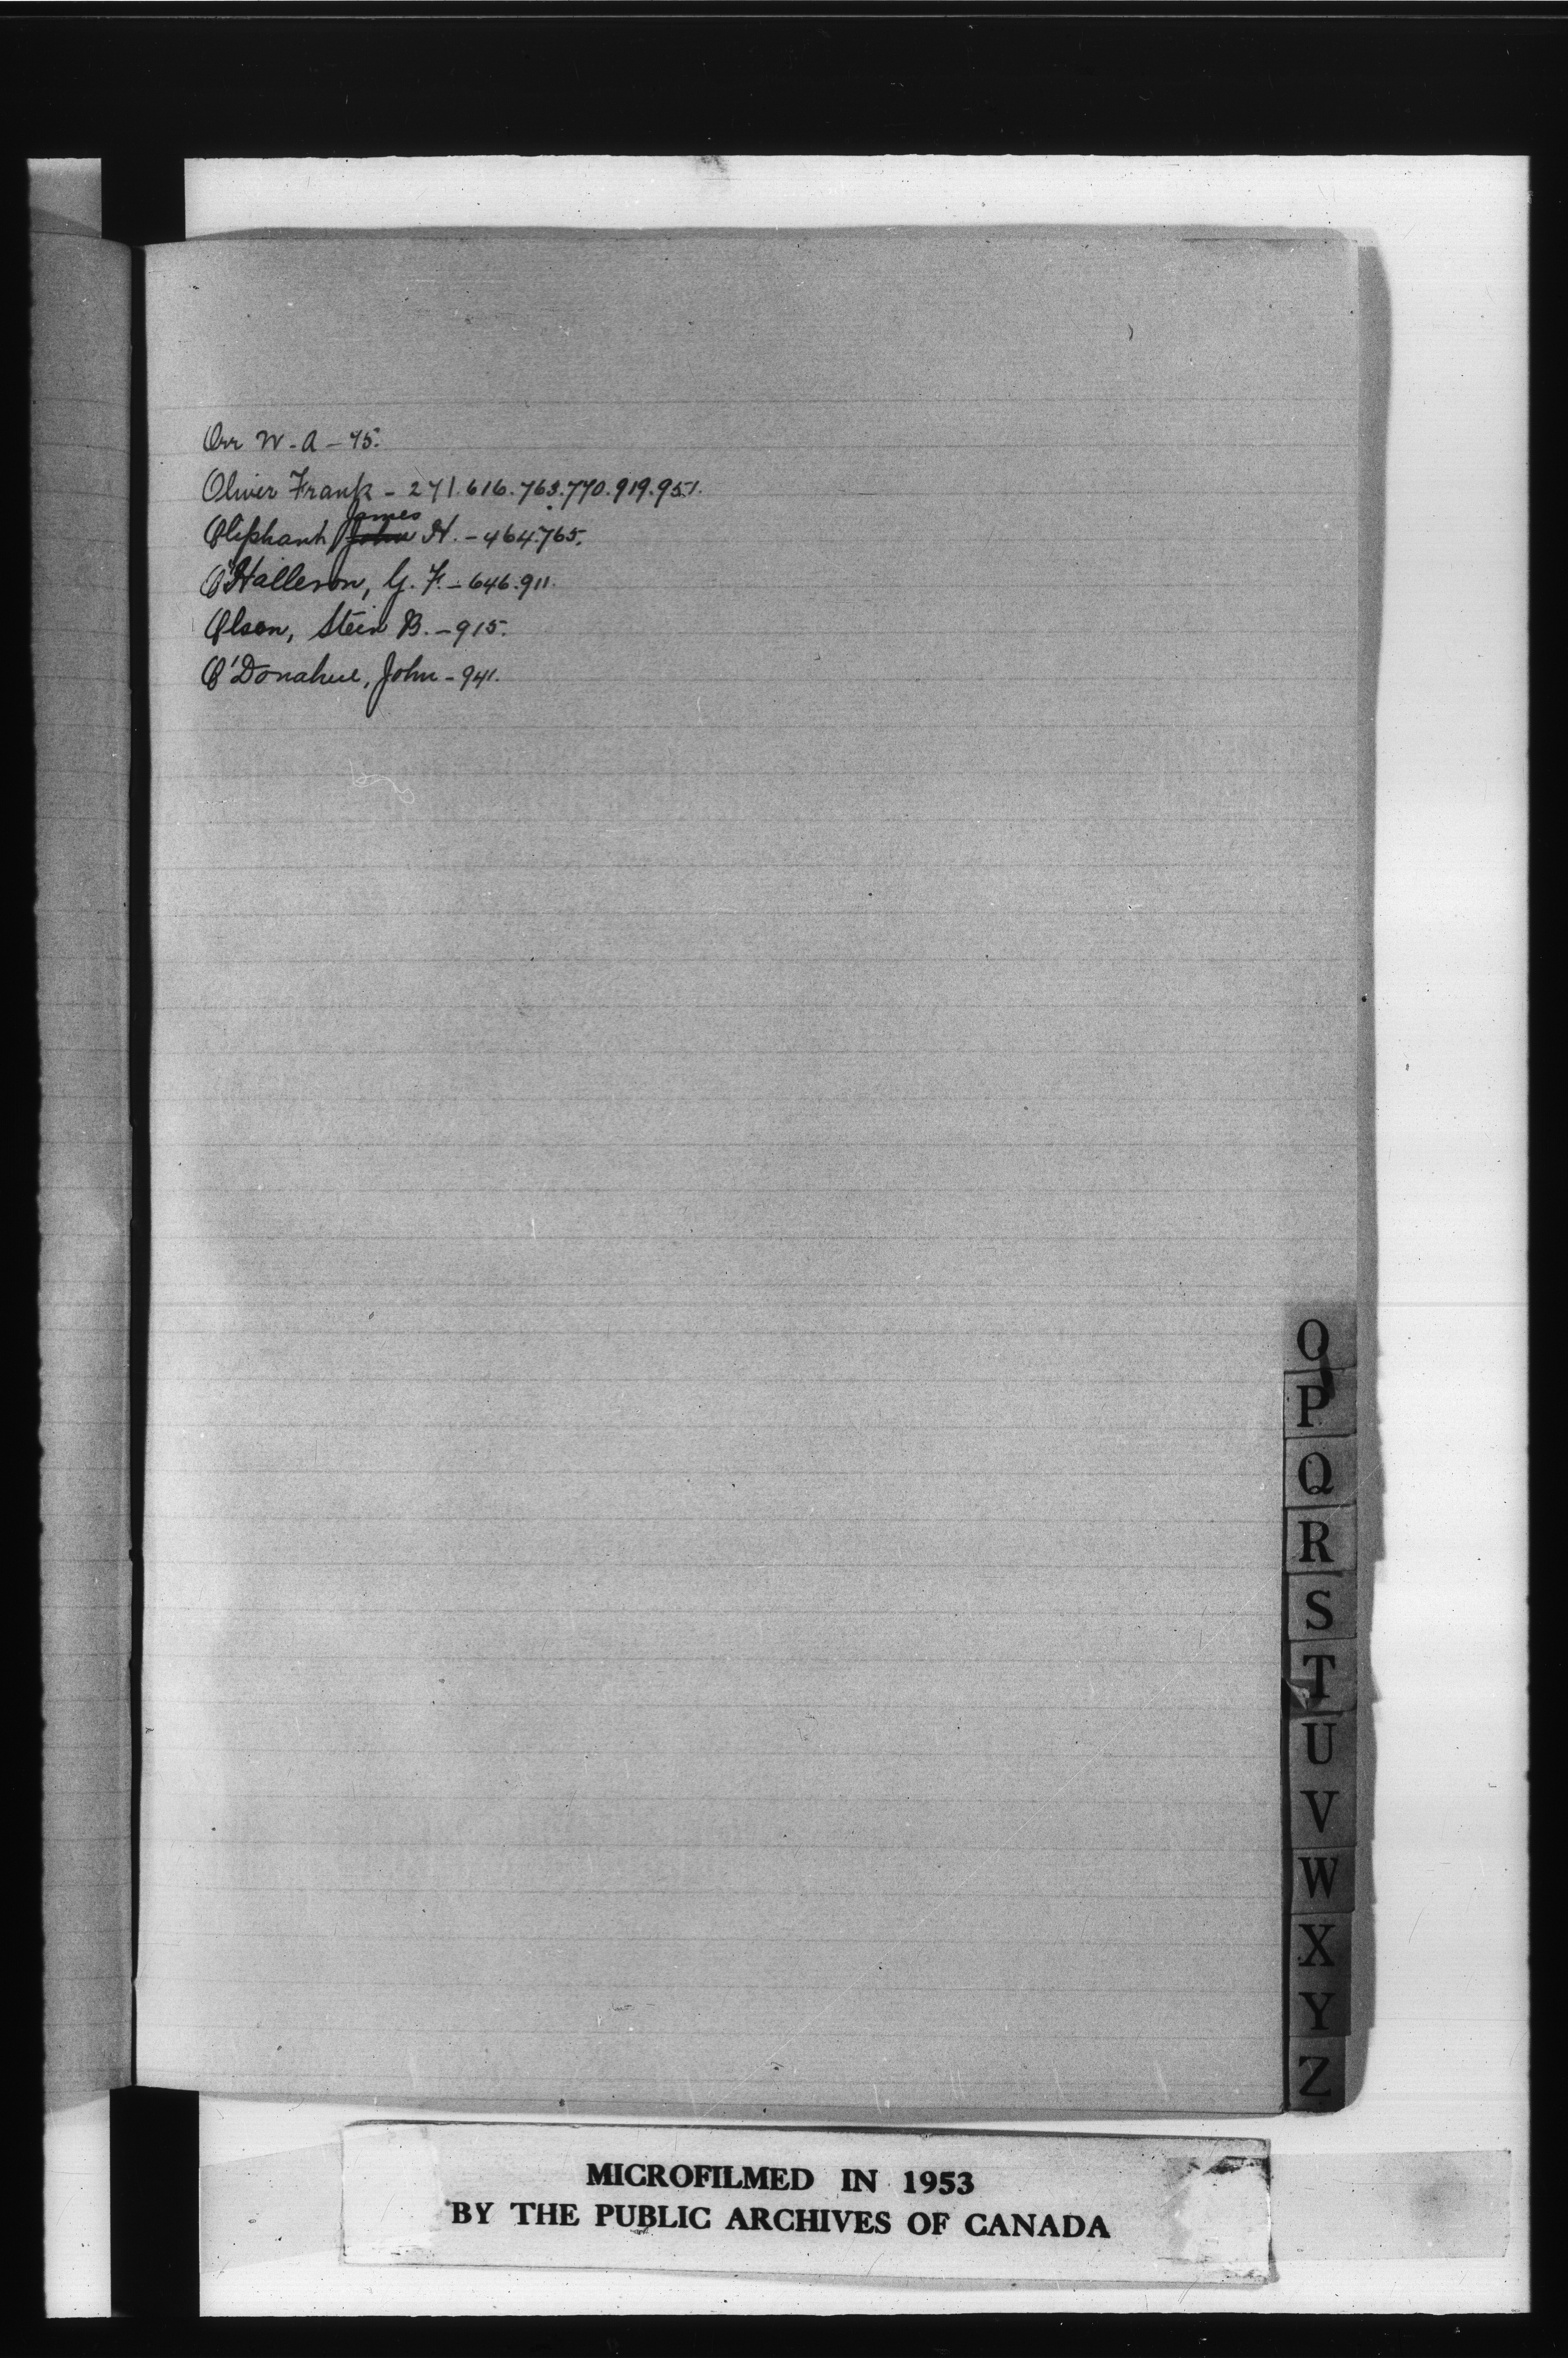 Orr W. A - 75.
Oliver Frank - 271.616.763.770.919.951.
James
Oliphant John H. - 464.765.
O'Halleron, G. F. - 646.911.
Olson, Stein B. - 915.
O'Donahue, John - 941.
O
P
Q
R
S
T
U
V
W
X
Y
Z
MICROFILMED IN 1953
BY THE PUBLIC ARCHIVES OF CANADA